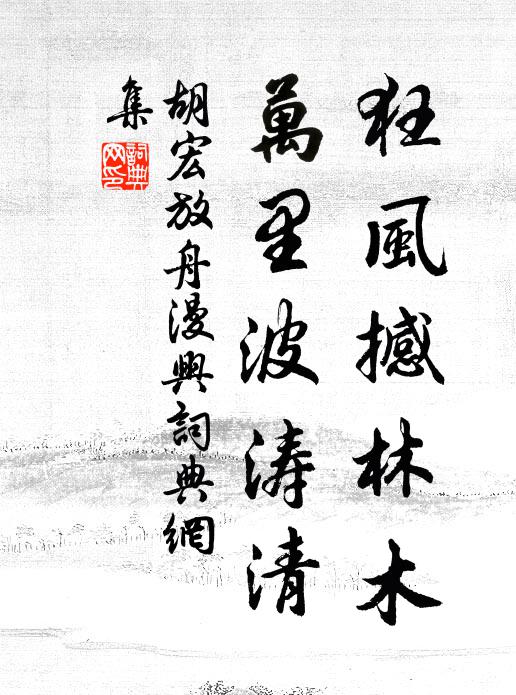 狂風撼林木
萬里波濤清
胡宏放舟漫興詞典網
集
詞典网印